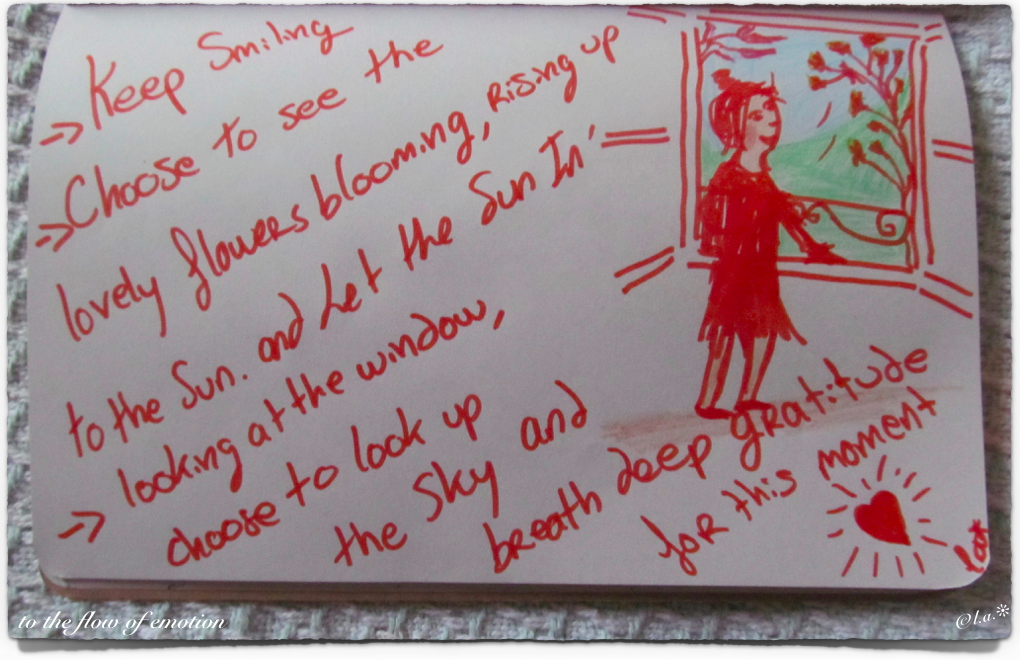 -> Keep Smiling
-> Choose to see the
lovely flowers blooming, Rising up
to the Sun. and Let the Sun In'
looking at the window,
-> choose to look up
the Sky and
breath deep gratitude
for this moment
to the flow of emotion
©l.a.*